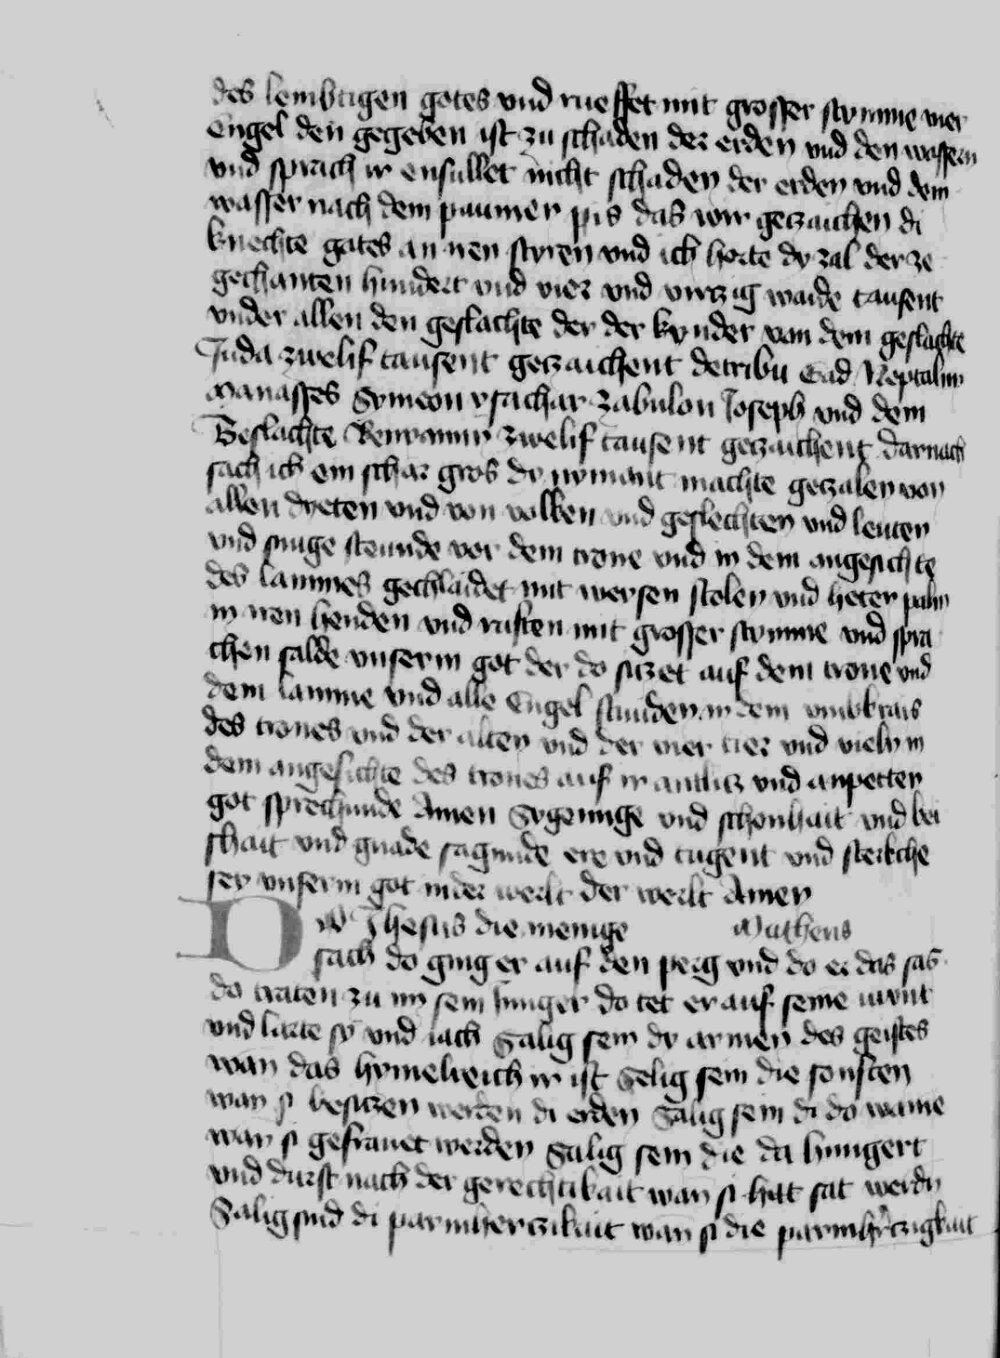 des lembtigen gotes vnd rueffet mit grosser stymme vier
Engel den gegeben ist zu schaden der erden vnd den wassern
vnd sprach ir ensullet nicht schaden der erden vnd dem
wasser nach dem paumen pis das wir geczaichen di
knechte gates an iren styren vnd ich horte dy zal der ze
gechanten hundert vnd vier vnd virczig waide tausent
vnder allen den geslachte der der kynder van dem geslachte
Juda zwelif tausent geczaichent detribu Gad Neptalim
Manasses Symeon ysachar zabulon Joseph vnd dem
Geslachte Benyamin zwelif tausent geczaichent darnach
sach ich ein schar gros dy nymant machte geczalen von
allen dyeten vnd von volken vnd geslechten vnd leuten
vnd sunge steunde vor dem trone vnd in dem angesichte
des lammes gechlaidet mit weysen stolen vnd heten palm
in iren henden vnd ruften mit grosser stymme vnd spra
chen salde vnserm got der do siczet auf dem trone vnd
dem lamme vnd alle Engel stunden in dem vmbkrais
des trones vnd der alten vnd der vier tier vnd vieln in
dem angesichte des trones auf ir antlicz vnd anpetten
got sprechunde Amen Sygenunge vnd schonhait vnd bei
shait vnd gnade sagunde ere vnd tugent vnd sterkche
sey vnserm got in der werlt der werlt Amen
Do Jhesus die menige Matheus
sach do ging er auf den perg vnd do er das sas
do traten zu im sein Junger do tet er auf seine munt
vnd larte sy vnd iach Salig sein dy armen des geistes
wan das hymelreich ir ist Selig sein die sonften
wan si besiczen werden di erden Salig sein di do waine
wan si gefrauet werden Salig sein die da hungert
vnd durst nach der gerechtikait wan si hat sat werdn
Salig sind di parmherczikait wan si die parmherczigkait